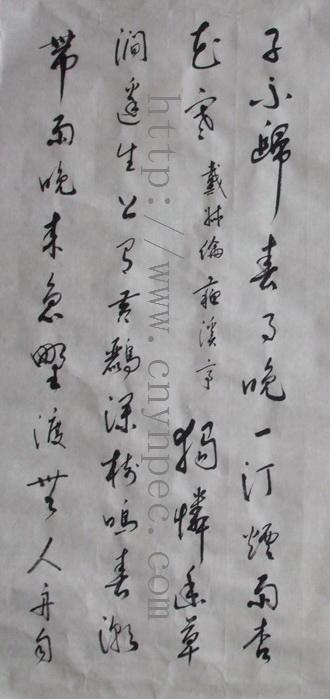 子不歸春事晚一汀煙雨杏
花寒戴叔倫蘇溪亭獨憐幽草
澗邊生上有黃鸝深樹鳴春潮
帶雨晚來急野渡無人舟自
http://www.cnynpec.com